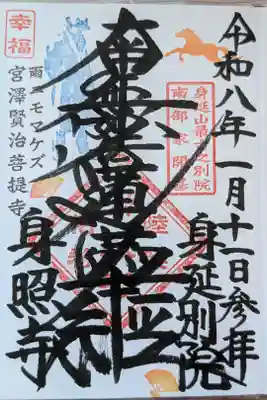 令和八年一月十一日参拝
身延山最初之別院
南部家開基
身延別院
南無妙法蓮華経
幸福
雨ニモマケズ
宮澤賢治菩提寺
身照寺